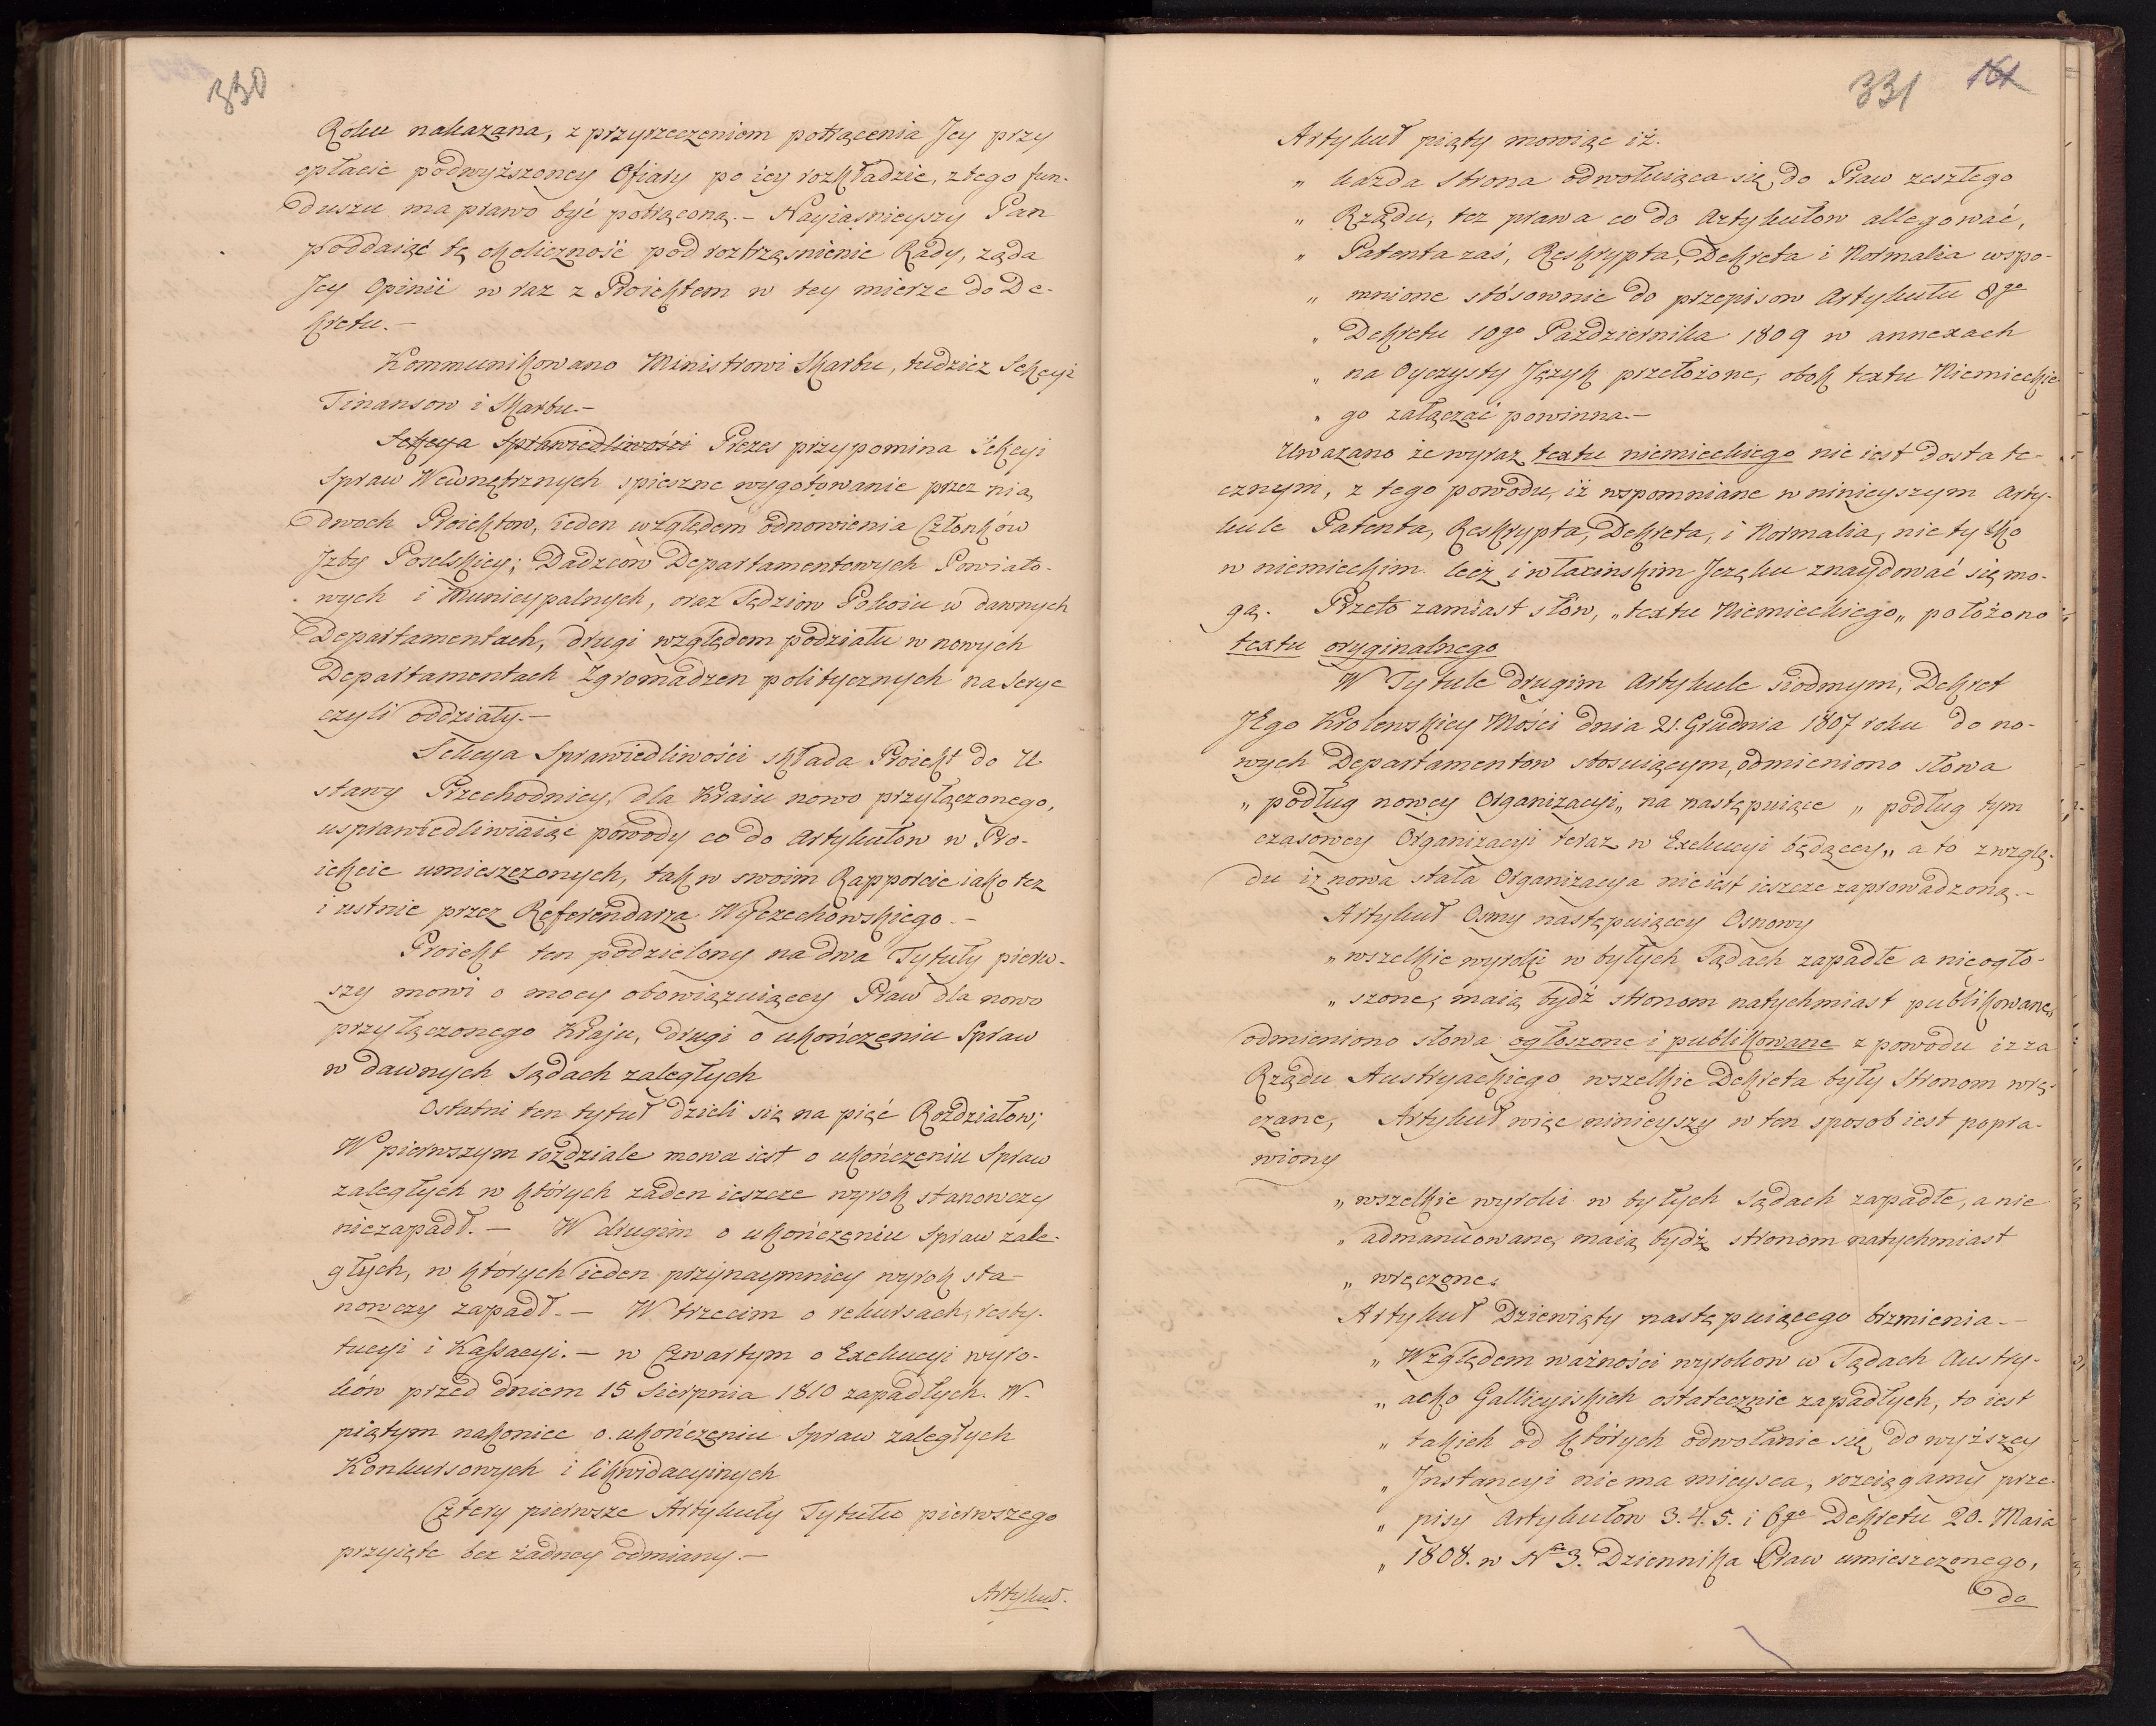 330
Roku nakazana, z przyrzeczeniem potrącenia Jey przy
opłacie podwyższoney Ofiary po iey rozkładzie, z tego fun-
duszu ma prawo być potrąconą.- Nayiasnieyszy Pan
poddaiąć tę okoliczność pod roztrząsnienie Rady, ząda
Jey Opinii w raz z Proiektem w tey mierze do De-
kretu.-
Kommunikowano Ministrowi Skarbu, tudziez Sekcyi
Finansow i Skarbu.-
Sekcya Sprawiedliwości Prezes przypomina Sekcyi
Spraw Wewnętrznych spieszne wygotowanie przez nią
dwoch Proiektow, ieden względem odnowienia Członków
Jzby Poselskiey; Radzców Departamentowych Powiato-
wych i Municypalnych, oraz Sędziow Pokoiu w dawnych
Departamentach, drugi względem podziału w nowych
Departamentach Zgromadzen politycznych na Serye
czyli oddziały.-
Sekcya Sprawiedliwości składa Proiekt do U
stawy Przechodniey, dla Kraiu nowo przyłączonego,
usprawiedliwiaiąc powody co do Artykułow w Pro-
iekcie umieszczonych, tak w swoim Rapporcie iako tez
i ustnie przez Referendarza Wyczechowskiego.-
Proiekt ten podzielony na dwa Tytuły pierw-
szy mowi o mocy obowiązuiącey Praw dla nowo
przyłączonego Kraju, drugi o ukończeniu Spraw
w dawnych Sądach zaległych
Ostatni ten tytuł dzieli się na pięć Rozdziałow;
W pierwszym rozdziale mowa iest o ukończeniu Spraw
zaległych w których zaden ieszcze wyrok stanowczy
niezapadł.- W drugim o ukończeniu Spraw zale-
głych, w których ieden przynaymniey wyrok sta-
nowczy zapadł.- W trzecim o rekursach, resty-
tucyi i Kassacyi.- w Czwartym o Exekucyi wyro-
ków przed dniem 15 Sierpnia 1810 zapadłych. W.
piątym nakoniec o ukończeniu Spraw zaległych
Konkursowych i likwidacyinych
Cztery pierwsze Artykuły Tytułu pierwszego
przyięte bez żadney odmiany.-
Artykuł.
331 161
Artykuł piąty mowiąc iż.
„ każda Strona odwołuiąca się do Praw zeszłego
„ Rządu, tez prawa co do Artykułow allegować,
„ Patenta zaś, Reskrypta, Dekreta i Normalia wspo-
„ mnione stósownie do przepisow Artykułu 8go
„ Dekretu 10go Pazdziernika 1809 w annexach
„ na Oyczysty Język przełożone, obok textu Niemieckie
„ go załączać powinna.-
Uwazano że wyraz textu niemieckiego nie iest dostate-
cznym, z tego powodu, iż wspomniane w ninieyszym Arty-
kule Patenta, Reskrypta, Dekreta, i Normalia, nie tylko
w niemieckim lecz i w łacinskim Jezęku znaydować się mo-
gą. Przeto zamiast słów, „textu Niemieckiego„ położono
textu oryginalnego
W Tytule drugim Artykule siodmym, Dekret
JEgo Krolewskiey Mości dnia 21. Grudnia 1807 roku do no-
wych Departamentow stosuiącym, odmieniono słowa
„ podług nowey Organizacyi„ na następuiące „ podług tym
czasowey Organizacyi teraz w Exekucyi będącey„ a to z wzglę-
du iz nowa stała Organizacya nie iest ieszcze zaprowadzoną.-
Artykuł Osmy następuiącey Osnowy
„ wszelkie wyroki w byłych Sądach zapadłe a nieogło-
„ szone, maią bydź stronom natychmiast publikowane„
odmieniono słowa ogłoszone i publikowane z powodu iz za
Rządu Austryackiego wszelkie Dekreta były Stronom wrę-
czane, Artykuł więc ninieyszy w ten sposob iest popra-
wiony
„ wszelkie wyroki w byłych Sądach zapadłe, a nie
„ admanuowane, maią bydź stronom natychmiast
„ wręczone„
Artykuł Dziewiąty następuiącego brzmienia.-
„ Względem ważności wyrokow w Sądach Austry-
„ acko Gallicyiskich ostatecznie zapadłych, to iest
„ takich od których odwołanie się do wyższey
„ Jnstancyi niema mieysca, rozciągamy prze-
„ pisy Artykułow 3. 4. 5. i 6go Dekretu 20. Maia
„ 1808. w No 3. Dziennika Praw umieszczonego,
do